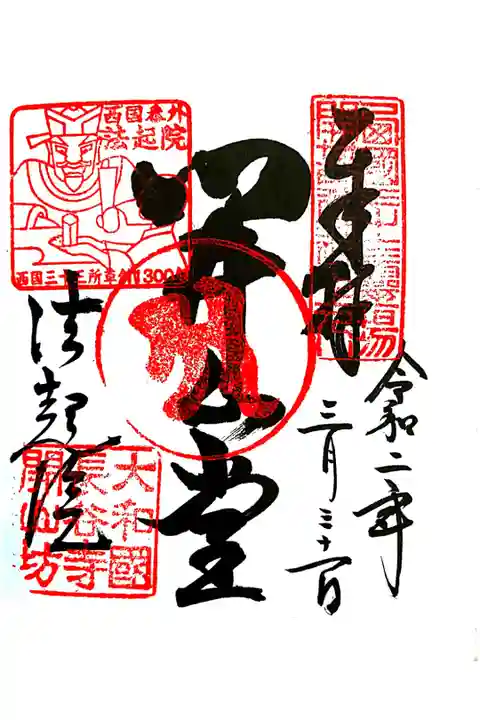 奉拝
令和二年
三月三十一日
開山堂
法起院
西国番外
法起院
西国三十三所草創1300年
大和國
長谷寺
開山坊